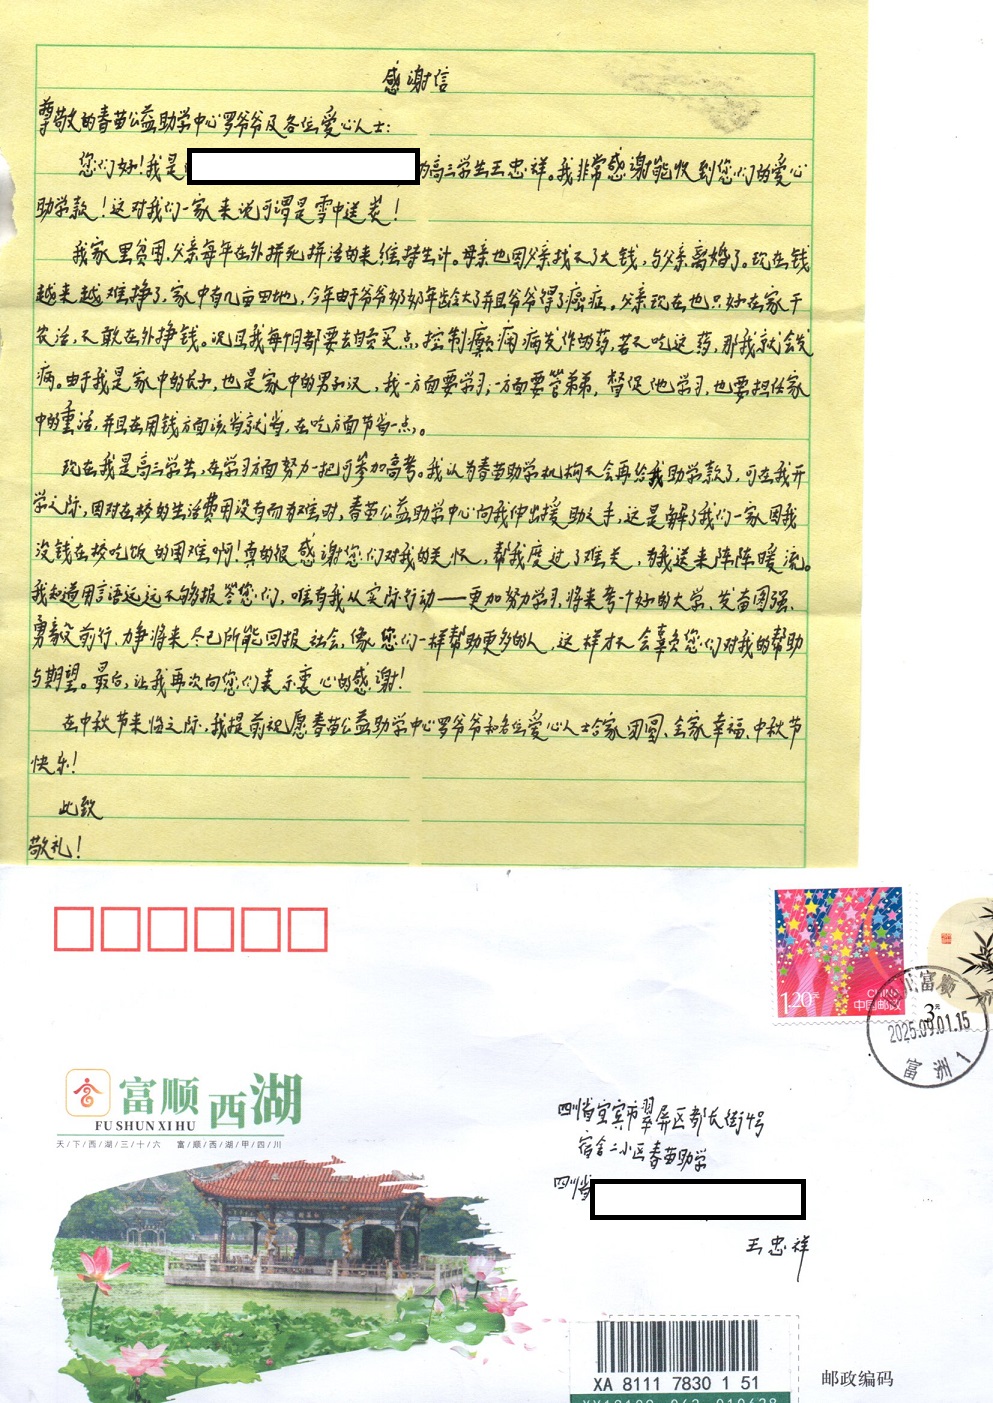 感谢信
尊敬的春苗公益助学中心罗爷爷及各位爱心人士:
您们好!我是
的高三学生王忠祥。我非常感谢能收到您们的爱心
助学款!这对我们一家来说可谓是雪中送炭!
我家里贫困,父亲每年在外拼死拼活的来维持生计。母亲也因父亲找不了大钱,与父亲离婚了。现在钱
越来越难挣了,家中有几亩田地,今年由于爷爷奶奶年龄大了并且爷爷得了癌症。父亲现在也只好在家干
农活,不敢在外挣钱。况且我每个月都要去自贡买点,控制癫痫病发作的药,若不吃这药,那我就会发
病。由于我是家中的长子,也是家中的男子汉,我一方面要学习;一方面要管弟弟,督促他学习,也要担任家
中的重活,并且在用钱方面该省就省,在吃方面节省一点。
现在我是高三学生,在学习方面努力一把可参加高考。我认为春苗助学机构不会再给我助学款了,可在我开
学之际,因对在校的生活费用没有而为难时,春苗公益助学中心向我伸出援助之手,这是解了我们一家因我
没钱在校吃饭的困难啊!真的很感谢您们对我的关怀,帮我度过了难关,为我送来阵阵暖流。
我知道用言语远远不够报答您们,唯有我从实际行动——更加努力学习,将来考一个好的大学、发奋图强、
勇毅前行,力争将来尽己所能回报社会,像您们一样帮助更多的人,这样才不会辜负您们对我的帮助
与期望。最后,让我再次向您们表示衷心的感谢!
在中秋节来临之际,我提前祝愿春苗公益助学中心罗爷爷和各位爱心人士合家团圆、全家幸福、中秋节
快乐!
此致
敬礼!
1.20元
CHINA
中国邮政
3元
富顺
2025.09.01.15
富洲1
富顺西湖
FU SHUN XI HU
天下西湖三十六 富顺西湖甲四川
四川省宜宾市翠屏区都长街4号
宿舍二小区春苗助学
四川省
王忠祥
XA 8111 7830 1 51
邮政编码